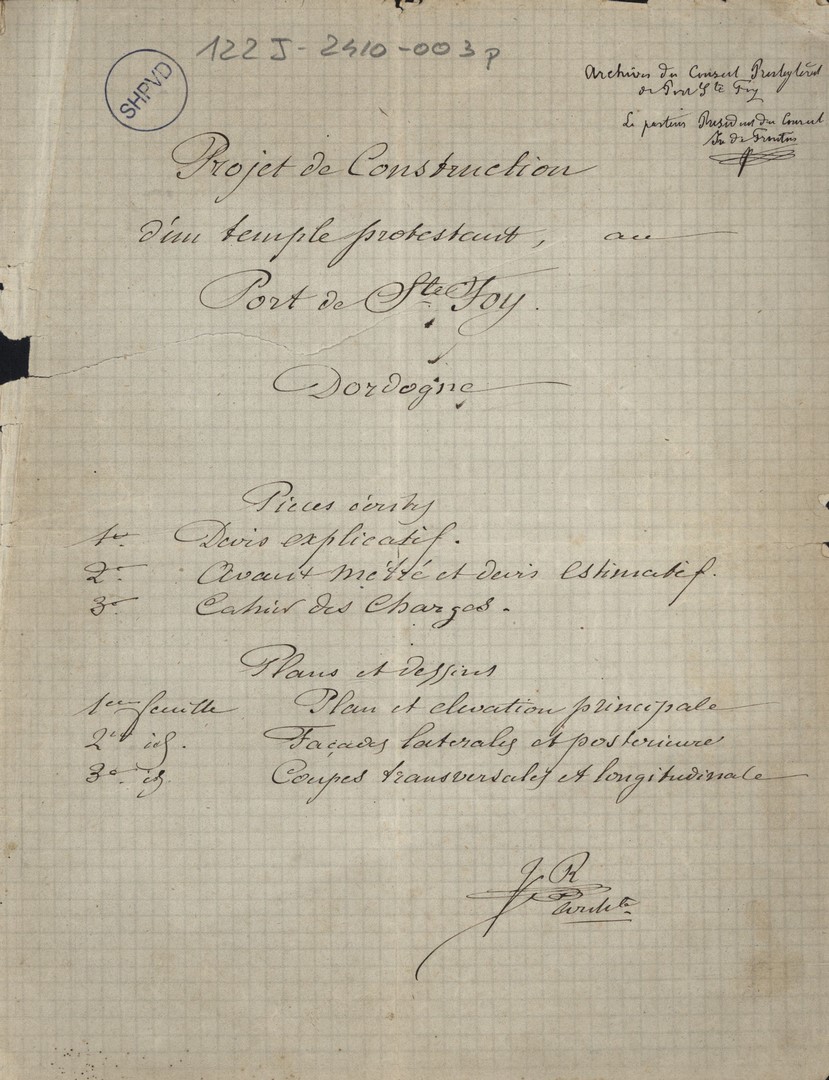 122 J - 2410 - 003 p
SHPVD
Archives du Conseil Presbytéral
de Port Ste Foy
Le pasteur Président du Conseil
Projet de Construction
d'un temple protestant, au
Port de Ste Foy.
Dordogne
Pièces écrites
1o Devis explicatif.
2o Avant métré et devis estimatif.
3o Cahier des Charges.
Plans et dessins
1ere feuille Plan et elevation principale
2e id. Façades laterales et posterieure
3e id. Coupes transversales et longitudinale
J R
Archte